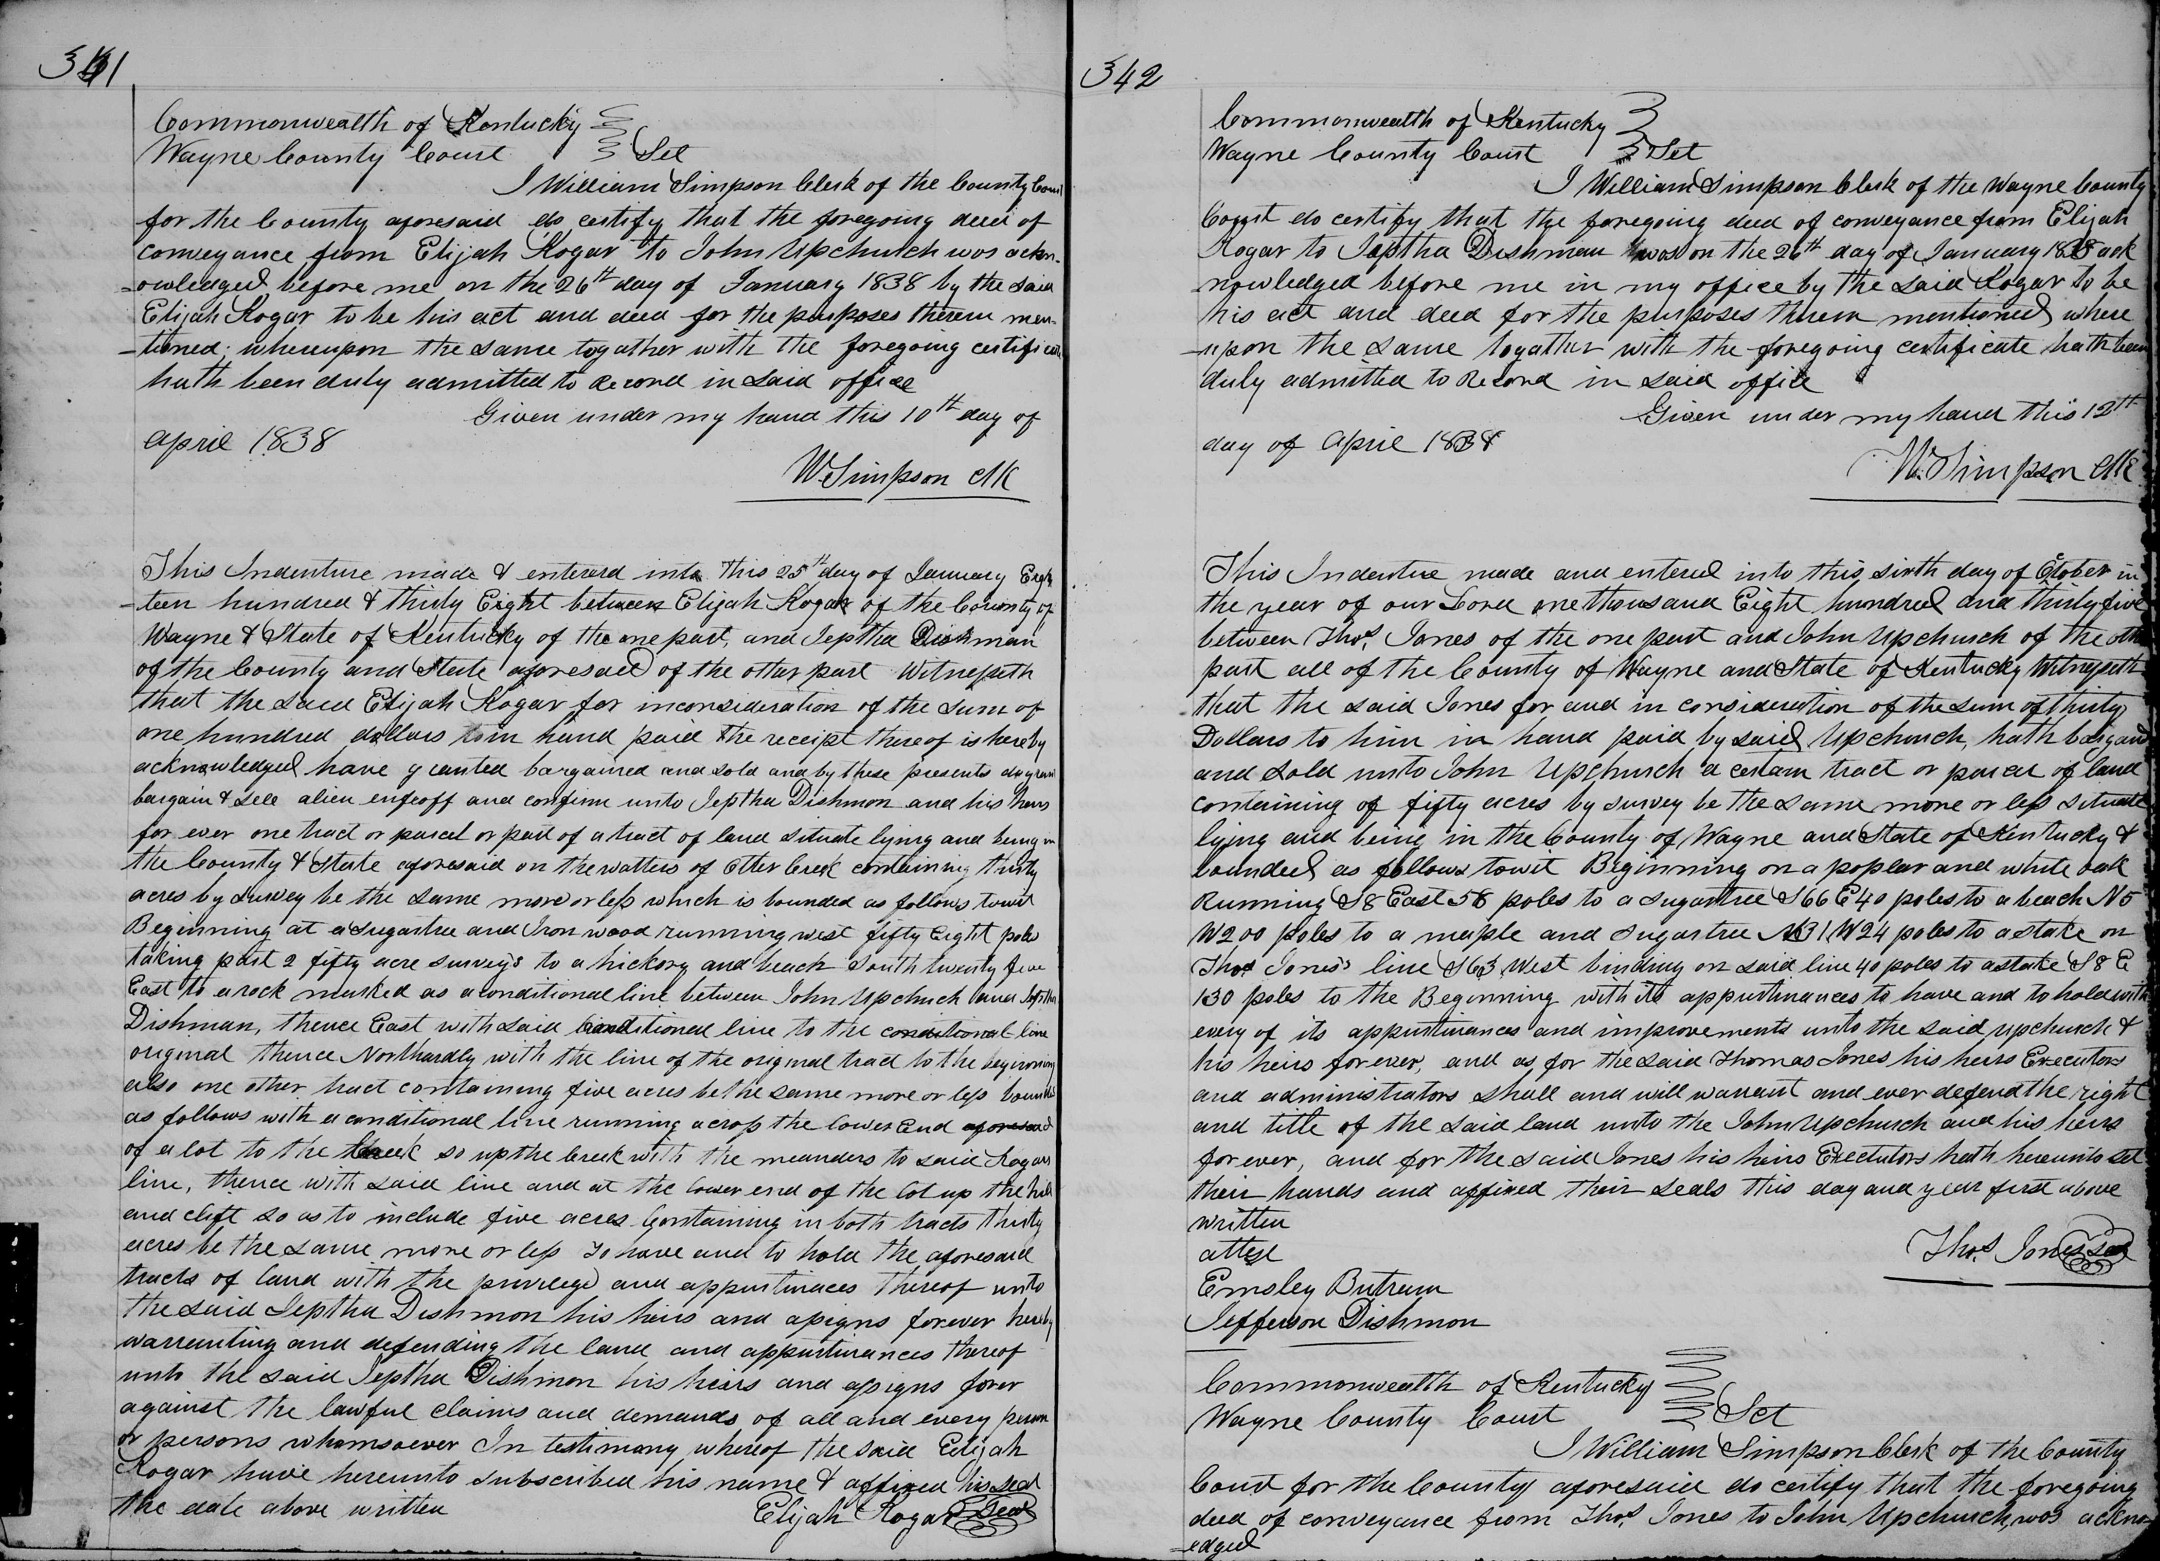 341
Commonwealth of Kentucky
Wayne County Court Sct
I William Simpson Clerk of the County Court
for the County aforesaid do certify that the foregoing deed of
conveyance from Elijah Kogar to John Upchurch was ackn-
-owledged before me on the 26th day of January 1838 by the said
Elijah Kogar to be his act and deed for the purposes therein men-
-tioned; whereupon the same togather with the foregoing certificate
hath been duly admitted to Record in said office
Given under my hand this 10th day of
april 1838
W. Simpson clk
This Indenture made & entered into this 25th day of January Eigh
-teen hundred & thirty Eight between Elijah Kogar of the County of
Wayne & State of Kentucky of the one part, and Jeptha Dishman
of the County and State aforesaid of the other part Witnesseth
that the said Elijah Kogar for inconsideration of the sum of
one hundred dollars to in hand paid the receipt thereof is hereby
acknowledged have granted bargained and sold and by these presents do grant
bargain & sell alien enfeoff and confirm unto Jeptha Dishmon and his heirs
for ever one tract or parcel or part of a tract of land situate lying and being in
the County & State aforesaid on the watters of Otter Creek containing thirty
acres by survey be the same more or less which is bounded as follows towit
Beginning at a sugartree and Iron wood running west fifty Eight poles
taking part 2 fifty acre surveys to a hickory and beach South twenty five
East to a rock marked as a conditional line between John Upchurch and Jeptha
Dishman, thence East with said conditional line to the conditional line
original thence Northardly with the line of the original tract to the beginning
also one other tract containing five acres be the same more or less bounded
as follows with a conditional line running across the lower End aforesaid
of a lot to the Creek so up the creek with the meanders to said Kogars
line, thence with said line and at the lower end of the lot up the hill
and clift so as to include five acres Containing in both tracts thirty
acres be the same more or less To have and to hold the aforesaid
tracts of land with the privilege and appurtinaces thereof unto
the said Jeptha Dishmon his heirs and assigns forever hereby
warranting and defending the land and appurtinances thereof
unto the said Jeptha Dishmon his heirs and assigns forer
against the lawful claims and demands of all and every person
or persons whomsoever In testimony whereof the said Elijah
Kogar have hereunto subscribed his name & affixed his seal
the date above written Elijah Kogar Seal
342
Commonwealth of Kentucky
Wayne County Court Sct
I William Simpson Clerk of the Wayne County
Court do certify that the foregoing deed of conveyance from Elijah
Kogar to Jeptha Dishman was on the 26th day of January 1838 ack
-nowledged before me in my office by the said Kogar to be
his act and deed for the purposes therein mentioned where
-upon the same togather with the foregoing certificate hath been
duly admitted to Record in said office
Given under my hand this 12th
day of April 1838
W. Simpson clk
This Indenture made and entered into this sixth day of October in
the year of our Lord one thousand Eight hundred and thirty five
between Thos. Jones of the one part and John Upchurch of the other
part all of the County of Wayne and State of Kentucky Witnesseth
that the said Jones for and in consideration of the sum of thirty
Dollars to him in hand paid by said Upchurch, hath bargand
and sold unto John Upchurch a certain tract or parcel of land
containing of fifty acres by survey be the same more or less situate
lying and being in the County of Wayne and State of Kentucky &
bounded as follows towit Beginning on a poplar and white oak
Running S8 East 58 poles to a sugartree S66 E40 poles to a beach N5
W200 poles to a maple and sugartree N31 W24 poles to a stake on
Thos Jones's line S63 West binding on said line 40 poles to a stake S8 E
130 poles to the Beginning with its appurtinances to have and to hold with
every of its appurtinances and improvements unto the said Upchurch &
his heirs for ever, and as for the said Thomas Jones his heirs Executors
and administrators shall and will warrant and ever defend the right
and title of the said land unto the John Upchurch and his heirs
for ever, and for the said Jones his heirs Executors hath hereunto set
their hands and affixed their seals this day and year first above
written
attest Thos. Jones Seal
Emsley Butram
Jefferson Dishmon
Commonwealth of Kentucky
Wayne County Court Sct
I William Simpson Clerk of the County
Court for the County aforesaid do certify that the foregoing
deed of conveyance from Thos. Jones to John Upchurch, was acknowl
-edged